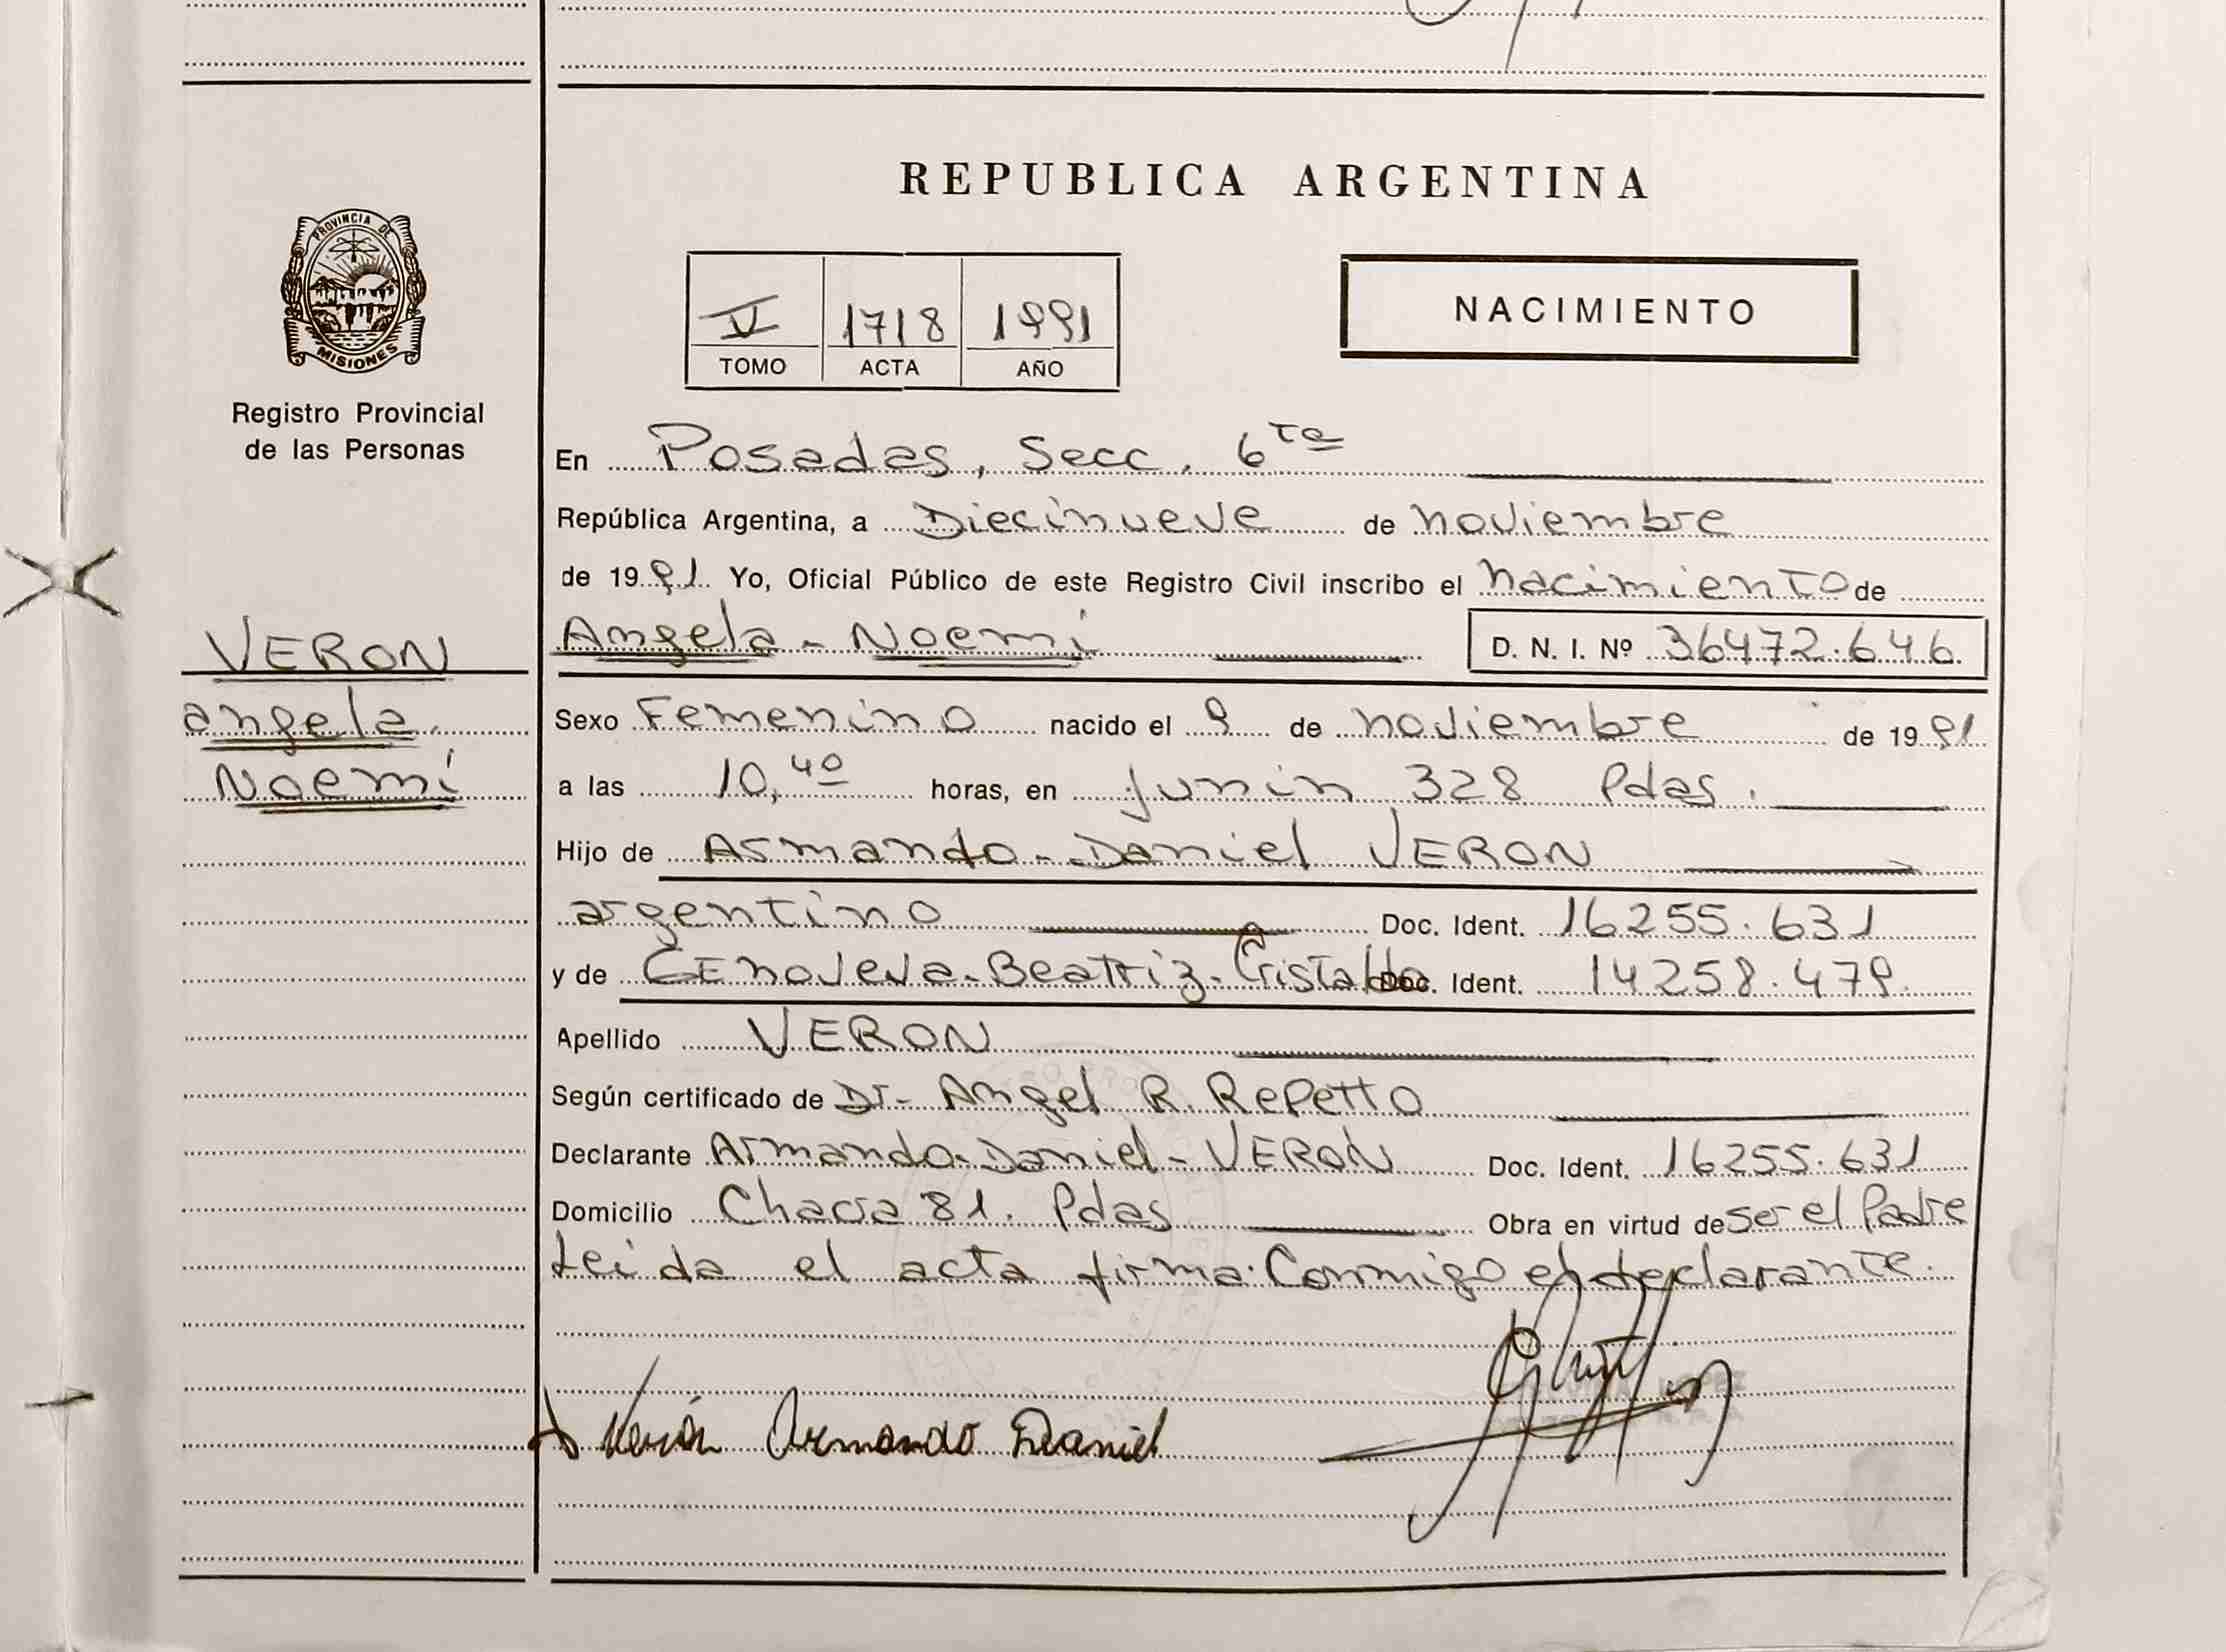 REPUBLICA ARGENTINA
PROVINCIA DE
MISIONES
Registro Provincial
de las Personas
V 1718 1991
TOMO ACTA AÑO
NACIMIENTO
En Posadas, Secc. 6ta
República Argentina, a Diecinueve de noviembre
de 1991 Yo, Oficial Público de este Registro Civil inscribo el nacimiento de
VERON
angela
Noemí
Angela - Noemí D. N. I. Nº 36472.646
Sexo Femenino nacido el 9 de noviembre de 1991
a las 10,40 horas, en junin 328 Pdas.
Hijo de Armando - Daniel VERON
argentino Doc. Ident. 16255.631
y de Genoveva - Beatriz - Cristaldo Doc. Ident. 14258.479
Apellido VERON
Según certificado de Dr - Angel R. Repetto
Declarante Armando - Daniel - VERON Doc. Ident. 16255.631
Domicilio Chacra 81. Pdas Obra en virtud de ser el Padre
Leida el acta firma Conmigo el declarante.
Verón Armando Daniel